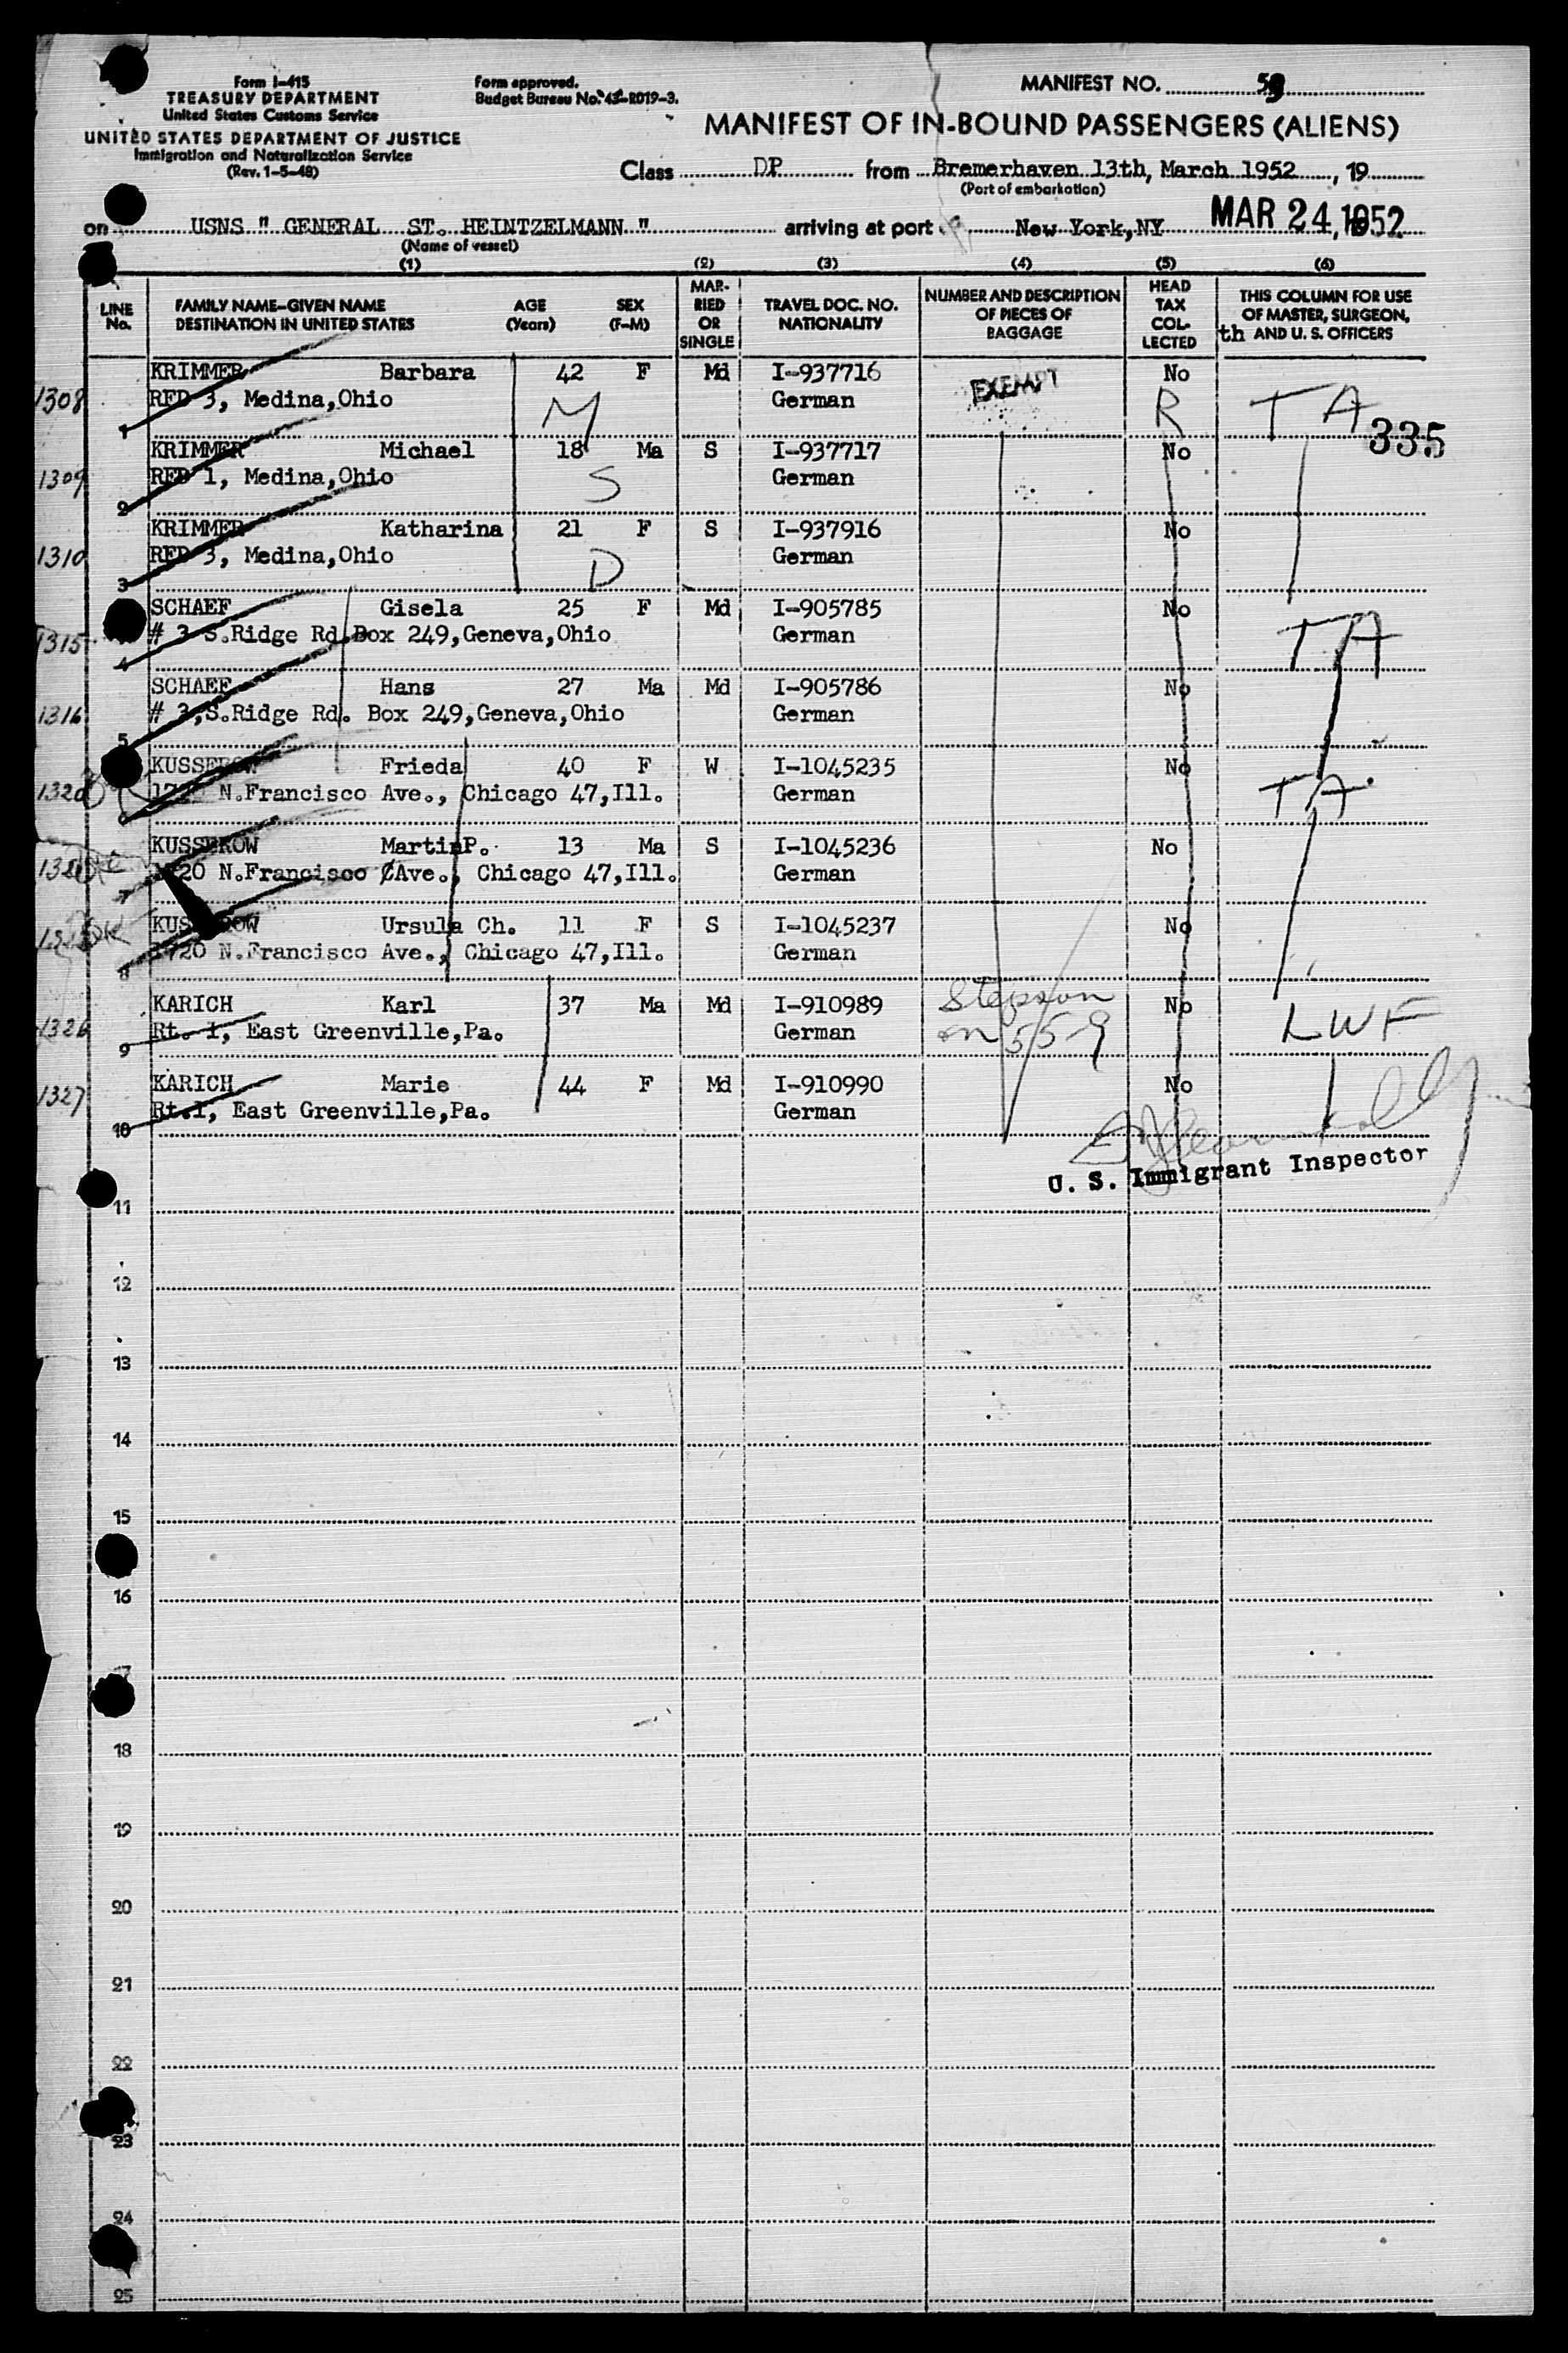 Form I-415
TREASURY DEPARTMENT
United States Customs Service
UNITED STATES DEPARTMENT OF JUSTICE
Immigration and Naturalization Service
(Rev. 1-5-48)
Form approved.
Budget Bureau No. 43-R019-3.
MANIFEST NO.
MANIFEST OF IN-BOUND PASSENGERS (ALIENS)
Class DP from Bremerhaven 13th, March 1952, 19
(Port of embarkation)
on USNS " GENERAL ST. HEINTZELMANN " arriving at port New York,NY MAR 24, 1952
(Name of vessel)
(1) (2) (3) (4) (5) (6)
LINE No. FAMILY NAME-GIVEN NAME DESTINATION IN UNITED STATES AGE (Years) SEX (F-M) MARRIED OR SINGLE TRAVEL DOC. NO. NATIONALITY NUMBER AND DESCRIPTION OF PIECES OF BAGGAGE HEAD TAX COLLECTED th THIS COLUMN FOR USE OF MASTER, SURGEON, AND U. S. OFFICERS
KRIMMER Barbara 42 F Md I-937716 EXEMPT No
1308 RFD 3, Medina,Ohio M German R TA
1 335
KRIMMER Michael 18 Ma S I-937717 No
1309 RFD 1, Medina,Ohio S German
2
KRIMMER Katharina 21 F S I-937916 No
1310 RFD 3, Medina,Ohio D German
3
SCHAEF Gisela 25 F Md I-905785 No
1315 # 3 S.Ridge Rd.Box 249,Geneva,Ohio German TA
4
SCHAEF Hans 27 Ma Md I-905786 No
1316 # 3,S.Ridge Rd. Box 249,Geneva,Ohio German
5
KUSSEROW Frieda 40 F W I-1045235 No
N.Francisco Ave., Chicago 47,Ill. German TA
6
KUSSEROW MartinP. 13 Ma S I-1045236 No
1720 N.Francisco Ave., Chicago 47,Ill. German
7
KUSSEROW Ursula Ch. 11 F S I-1045237 No
OK 1720 N.Francisco Ave., Chicago 47,Ill. German
8
KARICH Karl 37 Ma Md I-910989 Stepson No
1326 Rt. 1, East Greenville,Pa. German on 55-9 LWF
9
KARICH Marie 44 F Md I-910990 No
1327 Rt.1, East Greenville,Pa. German
10
U. S. Immigrant Inspector
11
12
13
14
15
16
17
18
19
20
21
22
23
24
25